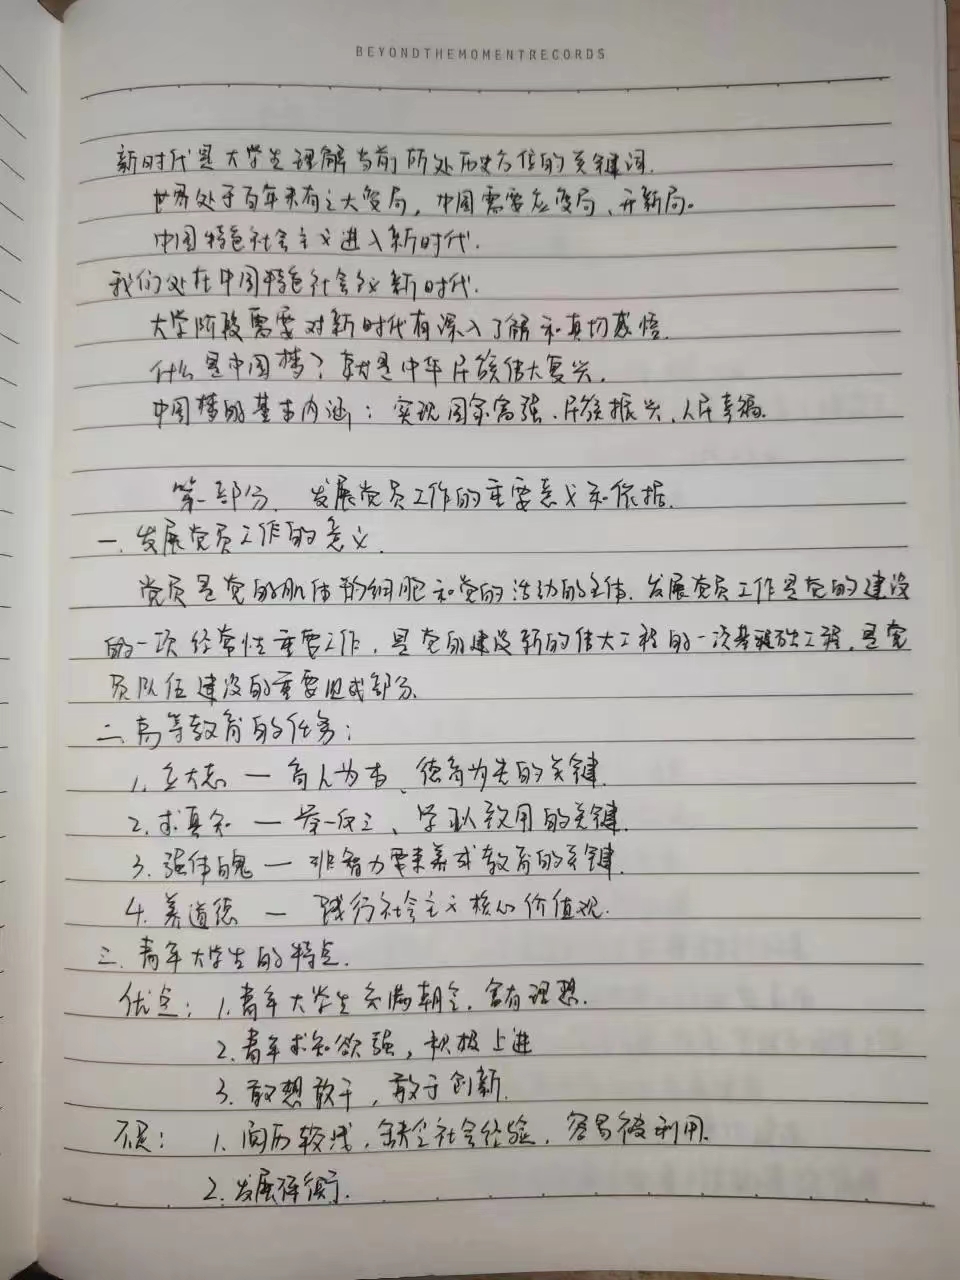 BEYONDTHEMOMENTRECORDS
新时代是大学生理解当前所处历史方位的关键词.
世界处于百年未有之大变局，中国需要应变局、开新局。
中国特色社会主义进入新时代.
我们处在中国特色社会主义新时代.
大学阶段需要对新时代有深入了解和真切感悟.
什么是中国梦？就是中华民族伟大复兴.
中国梦的基本内涵：实现国家富强、民族振兴、人民幸福.
第一部分、发展党员工作的重要意义和依据.
一. 发展党员工作的意义.
党员是党的肌体的细胞和党的活动的主体. 发展党员工作是党的建设
的一项经常性重要工作，是党的建设新的伟大工程的一次基础工程，是党
员队伍建设的重要组成部分.
二. 高等教育的任务：
1. 立大志 — 育人为本、德育为先的关键.
2. 求真知 — 举一反三、学以致用的关键.
3. 强体魄 — 非智力要素养成教育的关键.
4. 养道德 — 践行社会主义核心价值观.
三. 青年大学生的特点.
优点：1. 青年大学生充满朝气，富有理想.
2. 青年求知欲强，积极上进
3. 敢想敢干，敢于创新.
不足：1. 阅历较浅，缺乏社会经验，容易被利用.
2. 发展